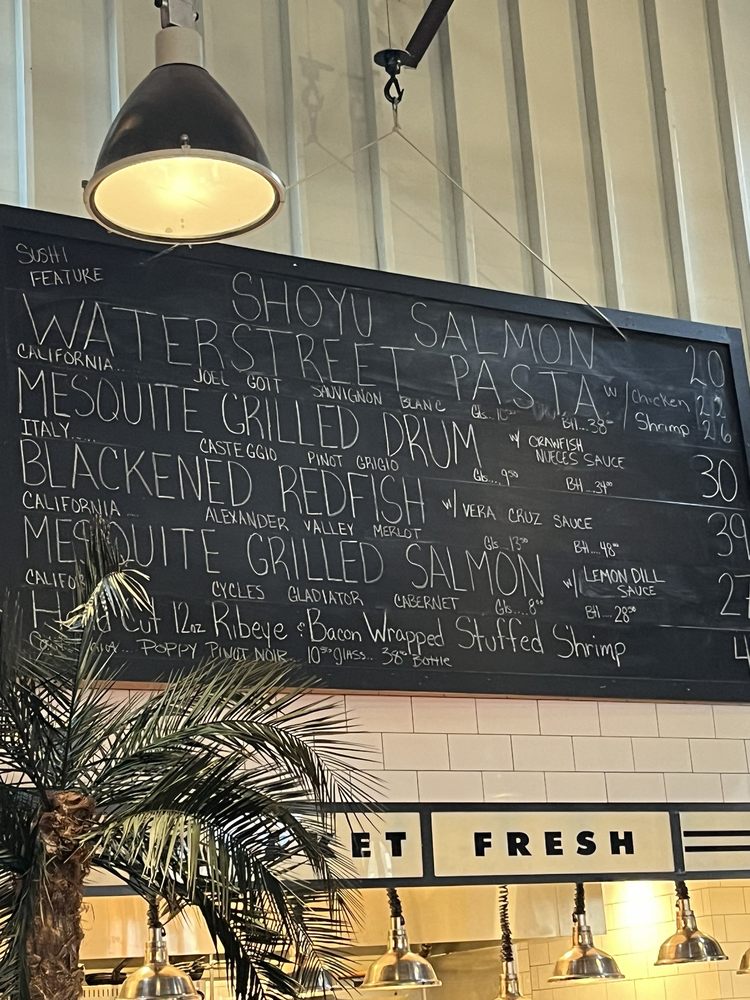 SUSHI
FEATURE
SHOYU SALMON 20
WATERSTREET PASTA w/ Chicken 22
Shrimp 26
CALIFORNIA.. JOEL GOTT SAUVIGNON BLANC Gls... Btl...38⁰⁰
MESQUITE GRILLED DRUM w/ CRAWFISH NUECES SAUCE 30
ITALY..... CASTEGGIO PINOT GRIGIO Gls...9⁵⁰ Btl...34⁰⁰
BLACKENED REDFISH w/ VERA CRUZ SAUCE 39
CALIFORNIA.... ALEXANDER VALLEY MERLOT Gls....13⁰⁰ Btl....48⁰⁰
MESQUITE GRILLED SALMON w/ LEMON DILL SAUCE 27
CYCLES GLADIATOR CABERNET Gls.....8⁰⁰ Btl....28⁵⁰
Cut 12oz Ribeye & Bacon Wrapped Stuffed Shrimp
POPPY PINOT NOIR... 10⁵⁰ glass.. 38⁰⁰ Bottle
ET FRESH